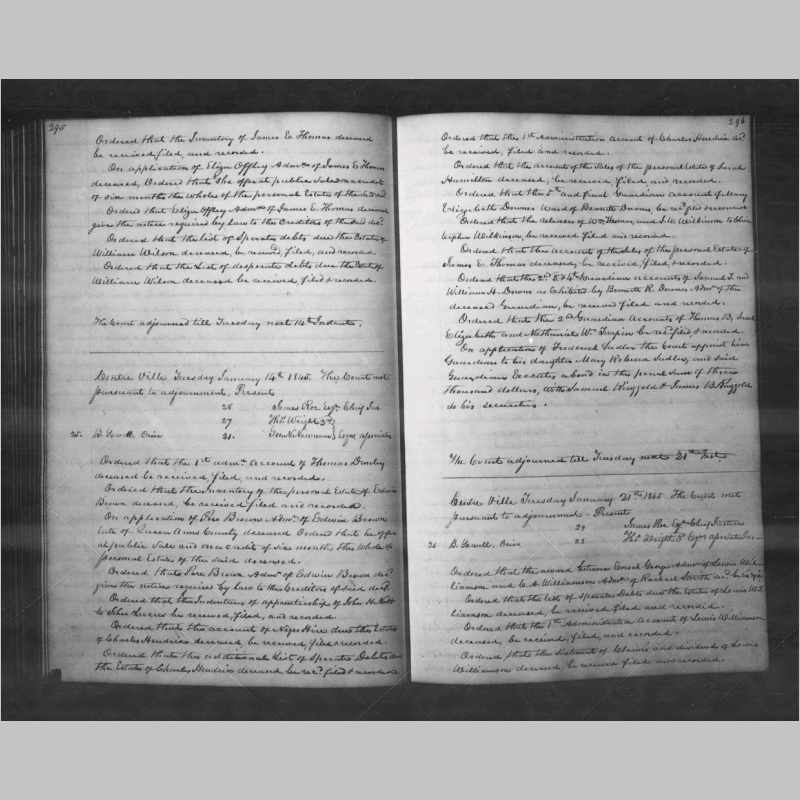 295
Ordered that the Inventory of James E. Thomas deceased
be received, filed, and recorded.
On application of Eliza Offley Admx. of James E. Thomas
deceased, Ordered that She offer at public Sale on a credit
of six months the whole of the personal Estate of the
Ordered that Eliza Offley Admx. of James E. Thomas deceased
give the notice required by law to the Creditors of the said decd.
Ordered that the list of Sperate debts due the Estate of
William Wilson deceased, be recd, filed, and record
Ordered that the List of desperate debts due the Estate of
William Wilson deceased be received, filed & recorded.
The Court adjourned till Tuesday next 14th Instant.
Centre Ville Tuesday January 14th 1845. The Court met
pursuant to adjournment, Present
26 James Roe Esqr. Chief Jus
27 Thos. Wright 3d
25. B. Crier 21. Esqrs associates
Ordered that the 1st admn. Account of Thomas
deceased be received, filed, and recorded.
Ordered that the Inventory of the personal Estate of Edwin
Brown deceased, be received filed and recorded.
On application of Pere Brown Admr. of Edwin Brown
late of Queen Anns County deceased Ordered that he offer
at public Sale and on a credit of six months, the Whole of
personal Estate of the said deceased.
Ordered that Pere Brown Admr. of Edwin Brown decd.
give the notice required by law to the Creditors of said decd.
Ordered that the Indenture of apprenticeship of John H.
to John be received, filed, and recorded.
Ordered that the account of Negro Hire due the Estate
of Charles Hendrix deceased, be received, filed & recorded.
Ordered that the additional List of Sperate Debts due
the Estate of Charles Hendrix deceased be recd. filed & recorded
296
Ordered that the 1st Administration account of Charles Hendrix decd.
be received, filed and recorded.
Ordered that the account of the Sales of the personal Estate of Sarah
Hamilton deceased, be received, filed, and recorded.
Ordered that the 5th and final Guardian account of Mary
Elizabeth Downes Ward of Bennett Downes, be recd. filed & recorded
Ordered that the releases of Wm. Thomas, and J. W. Wilkinson to
Wilkinson, be received filed and recorded.
Ordered that the Account of the Sales of the personal Estate of
James E. Thomas deceased, be received, filed, & recorded.
Ordered that the 3d & 4th Guardian accounts of Samuel T. and
William H. Downes as exhibited by Bennett R. Downes Admr. of the
deceased Guardian, be received filed and recorded.
Ordered that the 2d Guardian Accounts of Thomas B, Sarah
Elizabeth and Nathaniel W. Turpin be recd. filed & recorded.
On application of Frederick Sudler the Court appoint him
Guardian to his daughter Mary Rebecca Sudler, and said
Guardian Executes a bond in the penal sum of three
thousand dollars, with Samuel Ringgold & James B. Ringgold
as his securities.
The Court adjourned till Tuesday next 21st Inst.
Centre Ville Tuesday January 21st 1845 The Court met
pursuant to adjournment - Present
27 James Roe Esqr. Chief Justice
26 B. Crier 22 Thos. Wright 3d Esqr associate Jus
Ordered that the award George Admr of Lewis Wil-
liamson and Williamson Admr. of Smith
Ordered that the list of Sperate Debts due the Estate of Lewis Wil-
liamson deceased, be received filed and recorded.
Ordered that the 1st Administration Account of Lewis Williamson
deceased, be received, filed, and recorded.
Ordered that the Statement of Claims and dividends of Lewis
Williamson deceased be received filed and recorded.